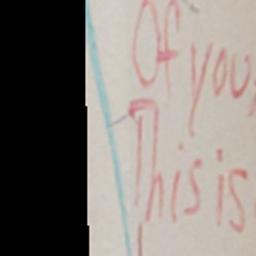 Of you,
This is